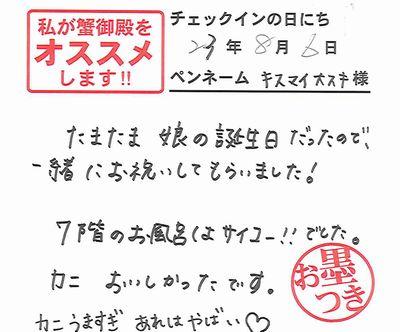 私が蟹御殿を
オススメ
します!!
チェックインの日にち
23年8月6日
ペンネーム キスマイカスキ様
たまたま 娘の誕生日だったので、
一緒にお祝いしてもらいました!
7階のお風呂はサイコー!!でした。
カニ おいしかったです。
カニうますぎ あれはやばい♡
お墨つき